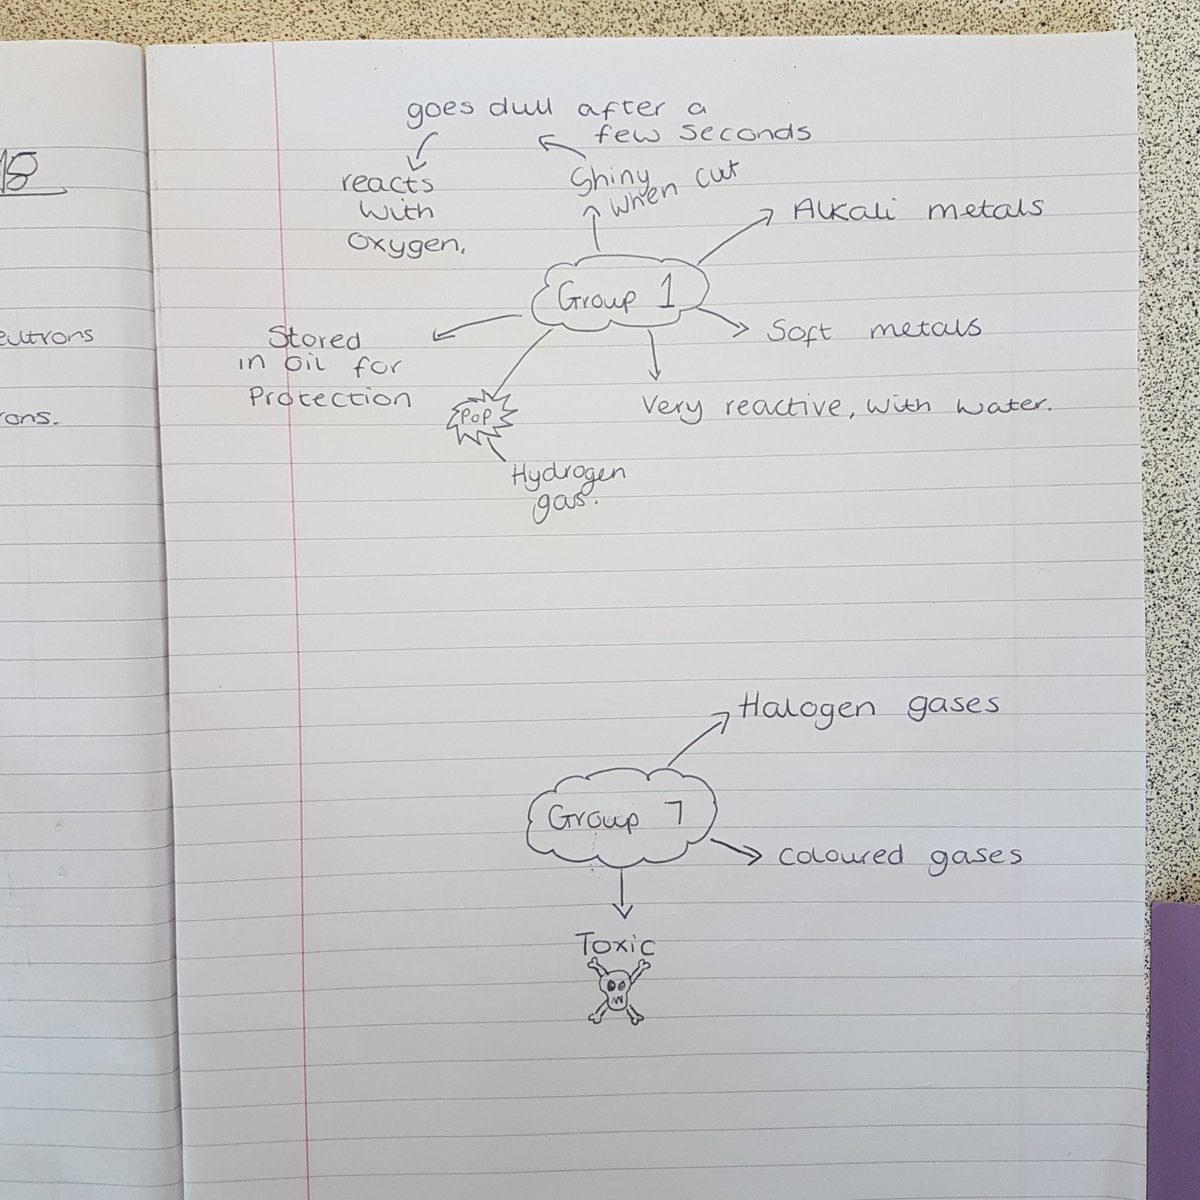 18
eutrons
ons.
goes dull after a
few seconds
reacts
with
oxygen.
Shiny
when cut
Alkali metals
Group 1
Stored
in oil for
Protection
Soft metals
POP
Very reactive, with water.
Hydrogen
gas.
Halogen gases
Group 7
coloured gases
Toxic